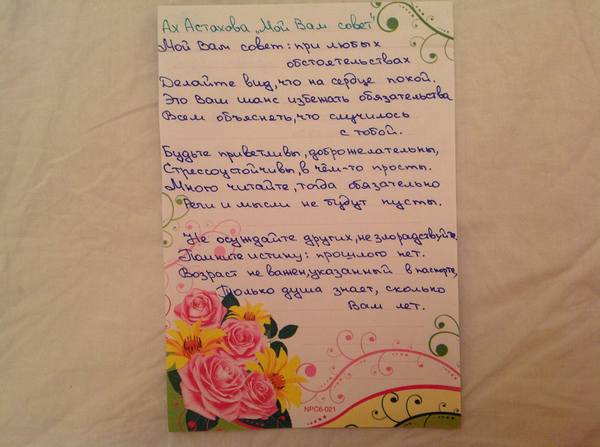 Ах Астахова „Мой Вам совет"
Мой Вам совет: при любых
обстоятельствах
Делайте вид, что на сердце покой.
Это Ваш шанс избежать обязательства
Всем объяснять, что случилось
с тобой.
Будьте приветливы, доброжелательны,
Стрессоустойчивы, в чём-то просты.
Много читайте, тогда обязательно
Речи и мысли не будут пусты.
Не осуждайте других, не злорадствуйте
Помните истину: прошлого нет.
Возраст не важен, указанный в паспорте,
Только душа знает, сколько
Вам лет.
NPC6-021